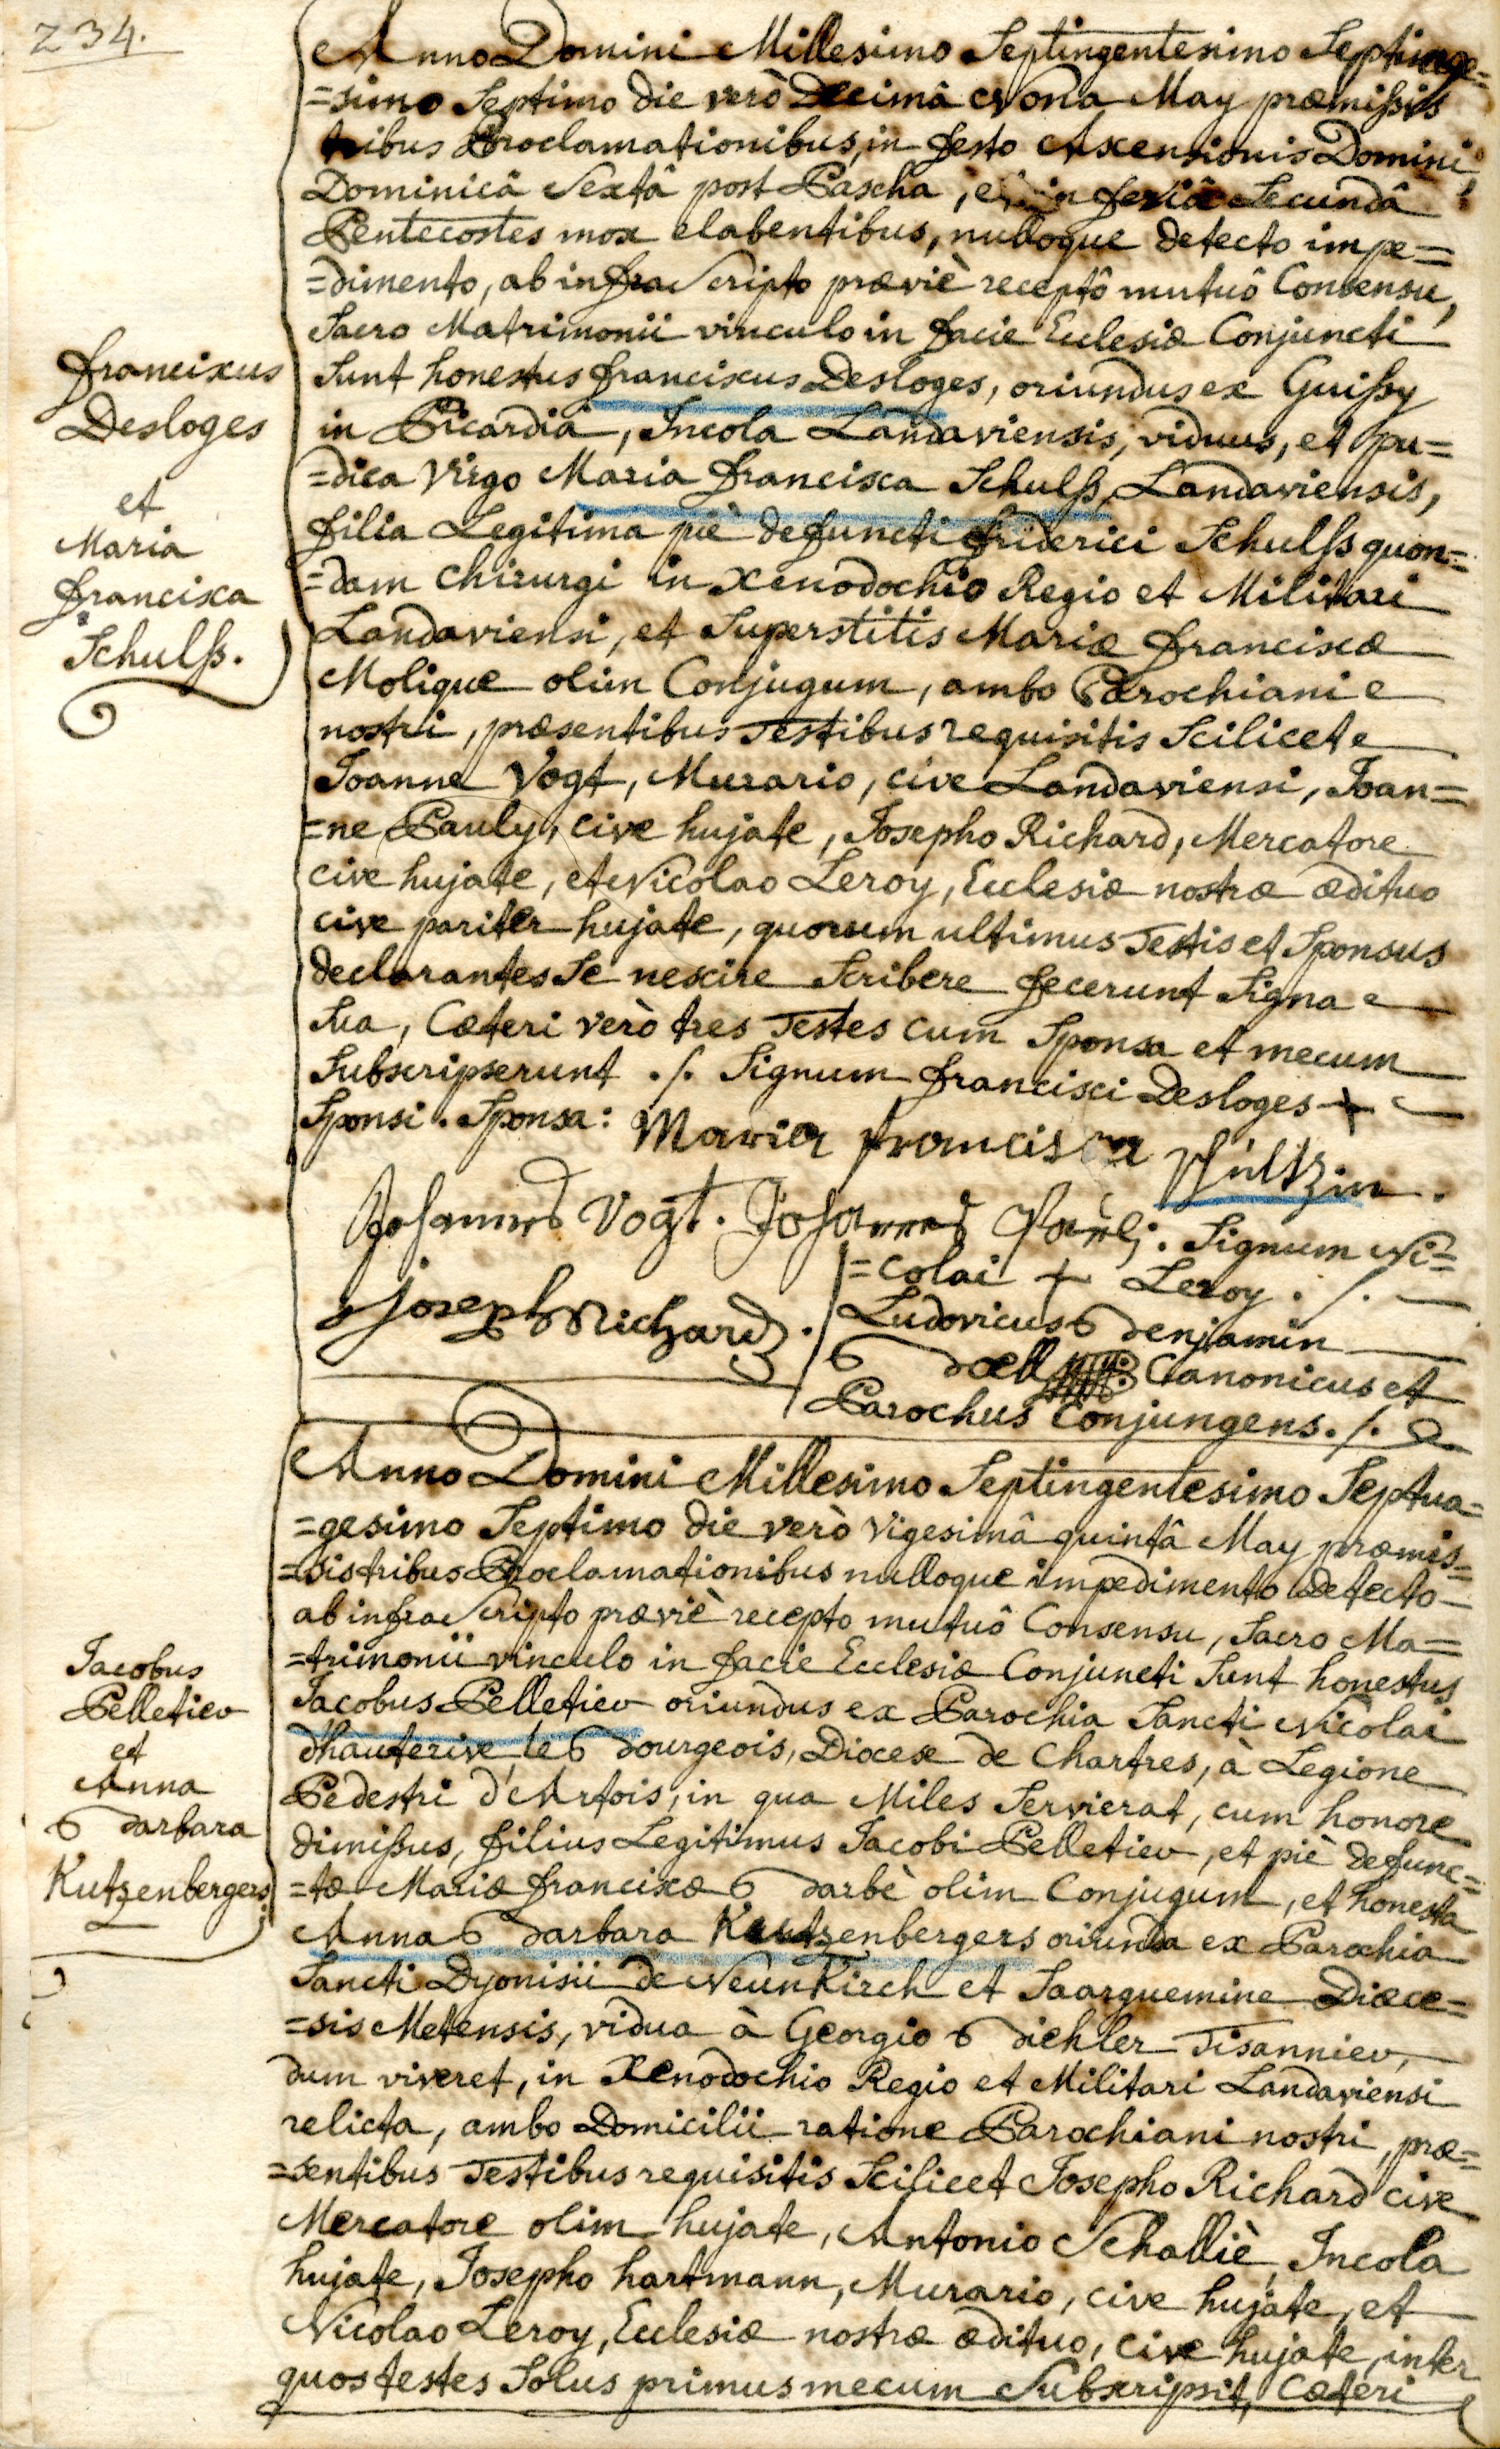 234.
Anno Domini Millesimo Septingentesimo Septuage=
=simo Septimo die verò Decimâ Nona May præmißis
tribus Proclamationibus, in festo Ascensionis Domini,
Dominicâ Sextâ post Pascha, et in feriâ Secundâ
Pentecostes mox elabentibus, nulloque detecto impe=
=dimento, ab infra Scripto præviè receptô mutuô Consensu,
Sacro Matrimonii vinculo in facie Ecclesiæ Conjuncti
Sunt honestus franciscus Desloges, oriundus ex Guißy
in Picardia, Incola Landaviensis, viduus, et pu=
=dica Virgo Maria francisca Schulß, Landaviensis,
filia Legitima piè defuncti friderici Schulß quon=
=dam Chirurgi in Xenodochio Regio et Militari
Landaviensi, et Superstitis Mariæ franciscæ
Molique olim Conjugum, ambo Parochiani
nostri, præsentibus Testibus requisitis Scilicet
Joanne Vogt, Murario, cive Landaviensi, Joan=
=ne Pauly, cive hujate, Josepho Richard, Mercatore
cive hujate, et Nicolao Leroy, Ecclesiæ nostræ ædituo
cive pariter hujate, quorum ultimus Testis et Sponsus
declarantes Se nescire Scribere fecerunt Signa
Sua, Cæteri verò tres Testes cum Sponsa et mecum
Subscripserunt ./. Signum francisci Desloges +
Sponsi. Sponsa: Maria francisca
Schultzin.
Johannes Vogt. Johannes Pauly. Signum Ni=
=colai + Leroy ./.
Joseph Richard.
Ludovicus Benjamin
Bœll Canonicus et
Parochus Conjungens ./.
franciscus
Desloges
et
Maria
francisca
Schulß.
Anno Domini Millesimo Septingentesimo Septua=
=gesimo Septimo die verò Vigesimâ quintâ May præmis=
=sis tribus Proclamationibus nulloque impedimento detecto
ab infra Scripto præviè recepto mutuô Consensu, Sacro Ma=
=trimonii vinculo in facie Ecclesiæ Conjuncti Sunt honestus
Jacobus Pelletier oriundus ex Parochia Sancti Nicolai
d'hauterive le Bourgeois, Diocese de Chartres, à Legione
Pedestri d'Artois, in qua Miles Servierat, cum honore
dimißus, filius Legitimus Jacobi Pelletier, et piè defunc=
=tæ Mariæ franciscæ Barbè olim Conjugum, et honesta
Anna Barbara Kutzenbergers oriunda ex Parochia
Sancti Dyonisii de Neunkirch et Saarguemine Diœce=
=sis Metensis, vidua à Georgio Biehler Tisannier,
dum viveret, in Xenodochio Regio et Militari Landaviensi
relicta, ambo Domicilii ratione Parochiani nostri, præ=
=sentibus Testibus requisitis Scilicet Josepho Richard cive
Mercatore olim hujate, Antonio Schalliè, Incola
hujate, Josepho hartmann, Murario, cive hujate, et
Nicolao Leroy, Ecclesiæ nostræ ædituo, cive hujate, inter
quos testes Solus primus mecum Subscripsit, Cæteri
Jacobus
Pelletier
et
Anna
Barbara
Kutzenbergers